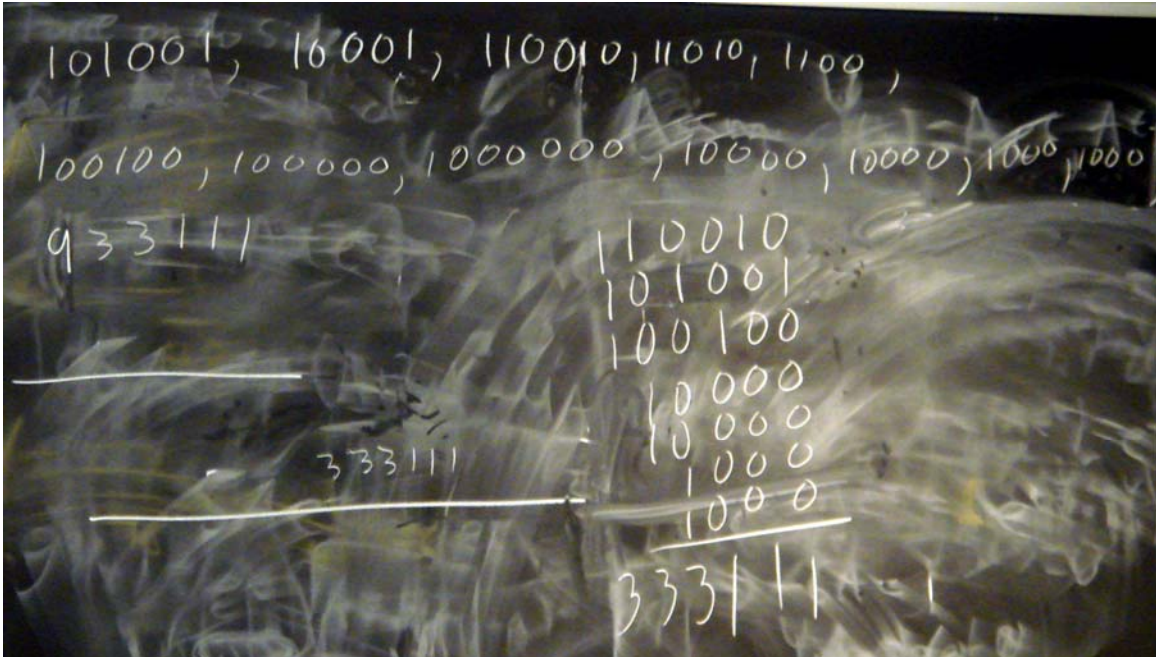 101001, 10001, 110010, 11010, 1100,
100100, 100000, 1000000, 10000, 10000, 1000, 1000
933111
110010
101001
100100
10000
10000
1000
333111
1000
333111 1